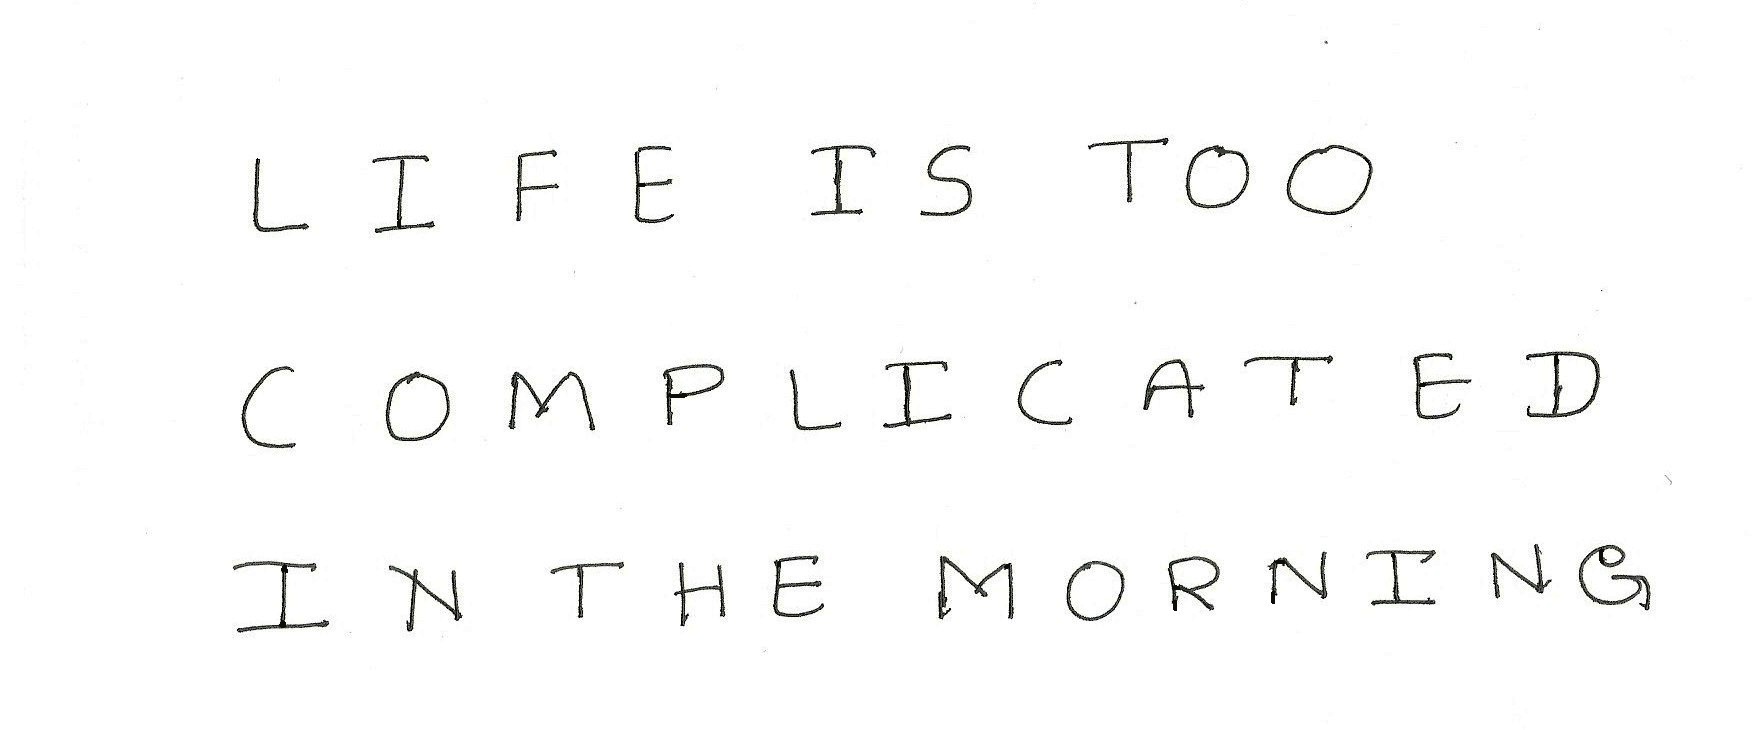 LIFE IS TOO
COMPLICATED
IN THE MORNING